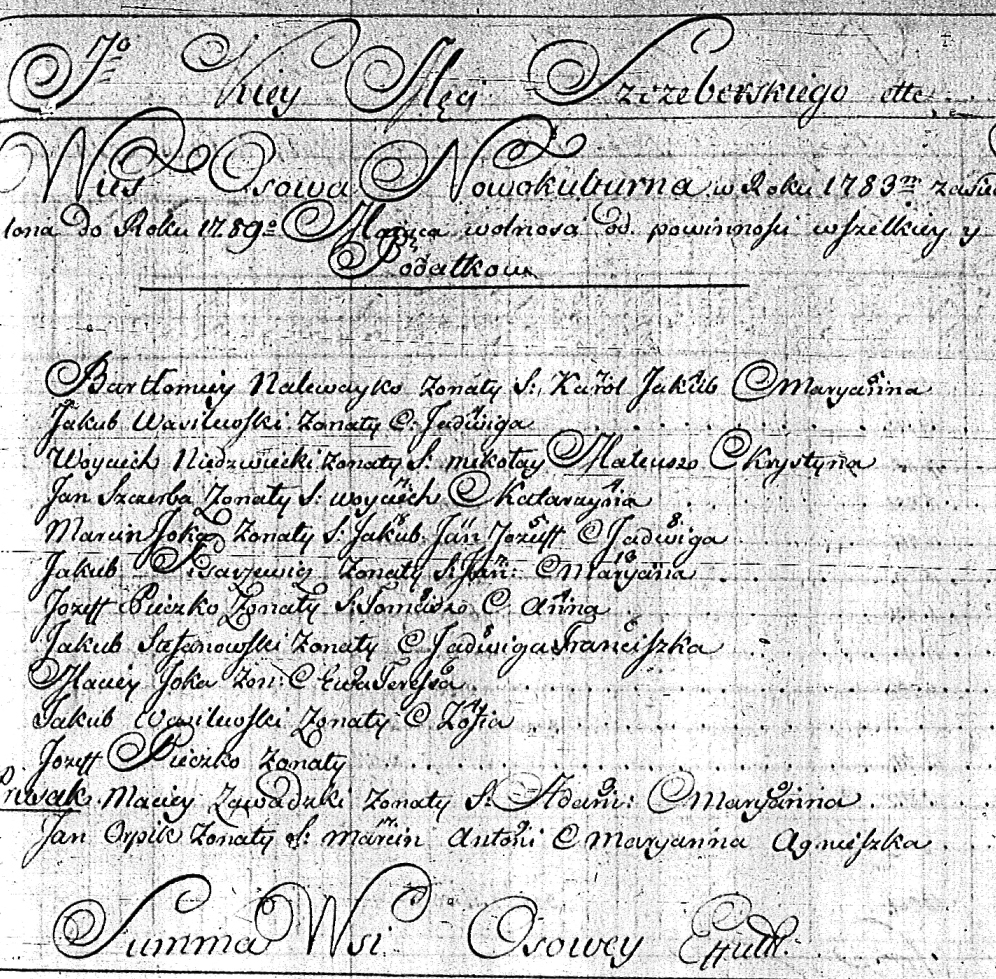 7º Kiey Męci Szczeberskiego ette
Wies Osowa Nowokulturna w Roku 1783m zasie
lona do Roku 1789º Maiąca wolnosa od powinnosci wszelkiey y
Podatkow
Bartłomiey Nalewayko zonaty S: Karol Jakub C Maryanna
Jakub Wasilewski zonaty C: Jadwiga
Woyciech Niedzwiecki zonaty S: mikołay Mateusz C Krystyna
Jan Szczerba Zonaty S: woyciech C Katarzyna
Marcin Joka zonaty S: Jakub Jan Jozeff C Jadwiga
Jakub zonaty S: Jan: C Maryana
Jozeff Pieczko Zonaty S. Tomasz C. Anna
Jakub Stefanowski zonaty C Jadwiga Franciszka
Maciey Joka zon: C Ewa Teressa
Jakub Wasilewski Zonaty C Zofia
Jozeff Pieczko zonaty
Maciey Zawadzki zonaty S: Adam: C Maryanna
Jan Orpik zonaty S: Marcin Antoni C Maryanna Agnieszka
Summa Wsi Osowey